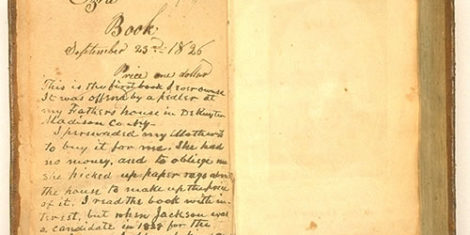 Book
September 23rd 1826
Price one dollar
This is the first book I ever owned
It was offered by a pedler at
my Father's house in DeRuyter
Madison Co. N.Y.
I persuaded my Mother
to buy it for me. She had
no money, and to oblige me
she picked up paper rags about
the house to make up the price
of it. I read the book with in-
terest, but when Jackson was
a candidate in 1828 for the